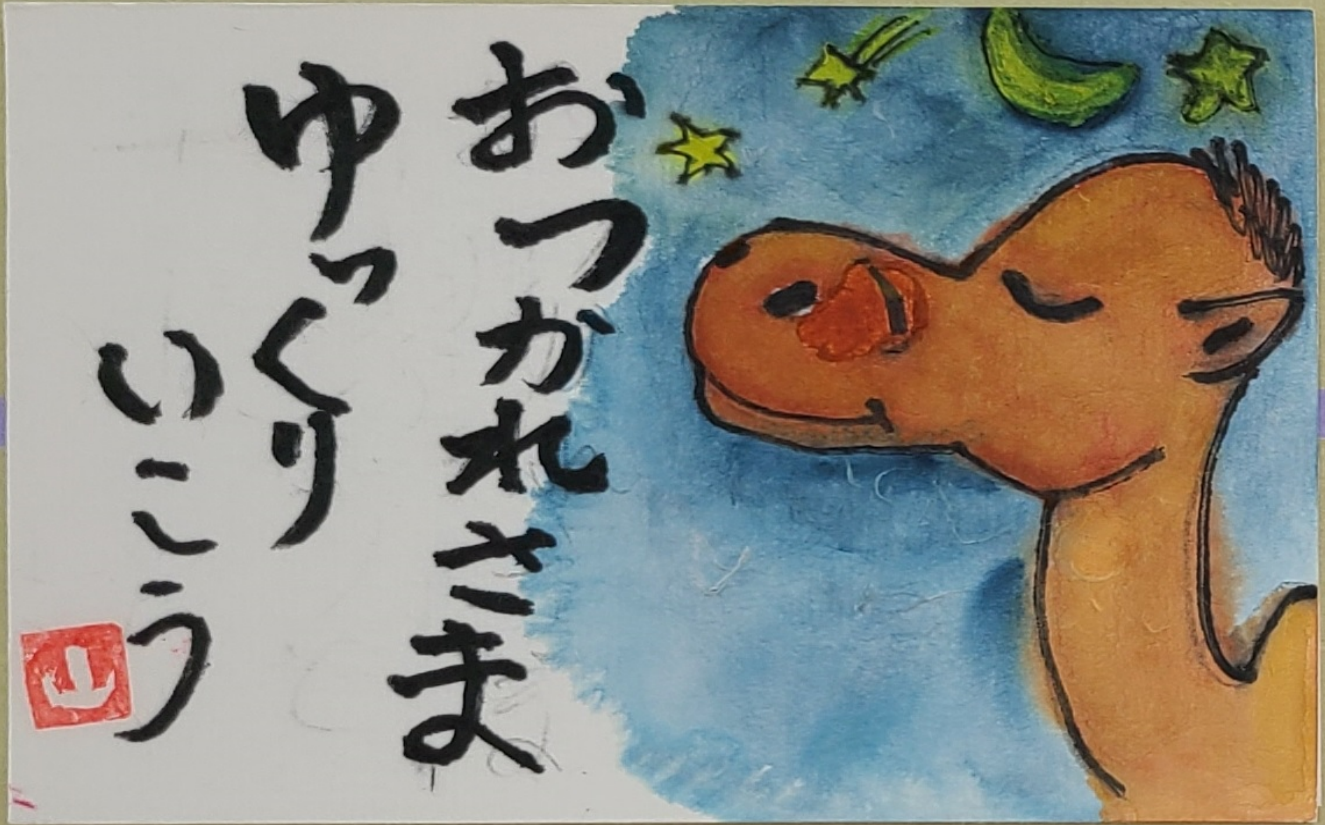 おつかれさま
ゆっくり
いこう
山